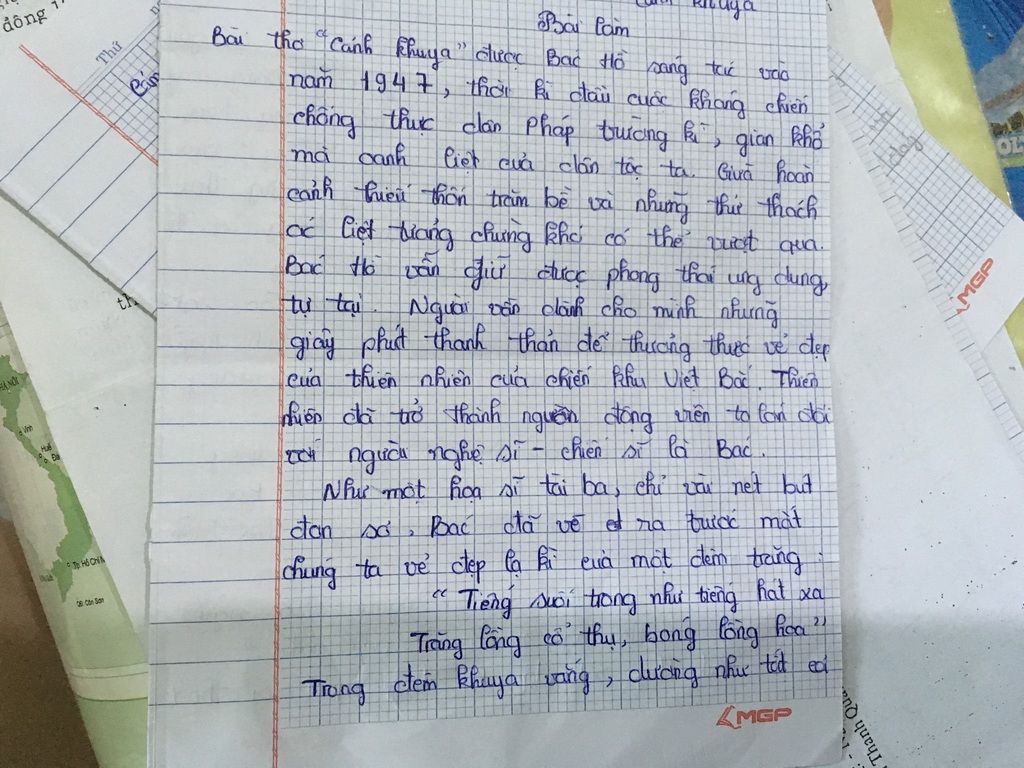 đông 1
Thứ
khuya
Bài làm
Bài thơ "Cảnh khuya" được Bác Hồ sáng tác vào
năm 1947, thời kì đầu cuộc kháng chiến
chống thực dân Pháp trường kì, gian khổ
mà oanh liệt của dân tộc ta. Giữa hoàn
cảnh thiếu thốn trăm bề và những thử thách
ác liệt tưởng chừng khó có thể vượt qua.
Bác Hồ vẫn giữ được phong thái ung dung,
tự tại. Người vẫn dành cho mình những
giây phút thanh thản để thưởng thức vẻ đẹp
của thiên nhiên của chiến khu Việt Bắc. Thiên
nhiên đã trở thành nguồn động viên to lớn đối
với người nghệ sĩ - chiến sĩ là Bác.
Như một họa sĩ tài ba, chỉ vài nét bút
đơn sơ, Bác đã vẽ ra trước mắt
chúng ta vẻ đẹp lạ kì của một đêm trăng:
"Tiếng suối trong như tiếng hát xa
Trăng lồng cổ thụ, bóng lồng hoa"
Trong đêm khuya vắng, dường như tất cả
MGP
MGP
HÀ NỘI
Vinh
Huế
TP. HỒ CHÍ M
Côn Sơn
Thanh Quá